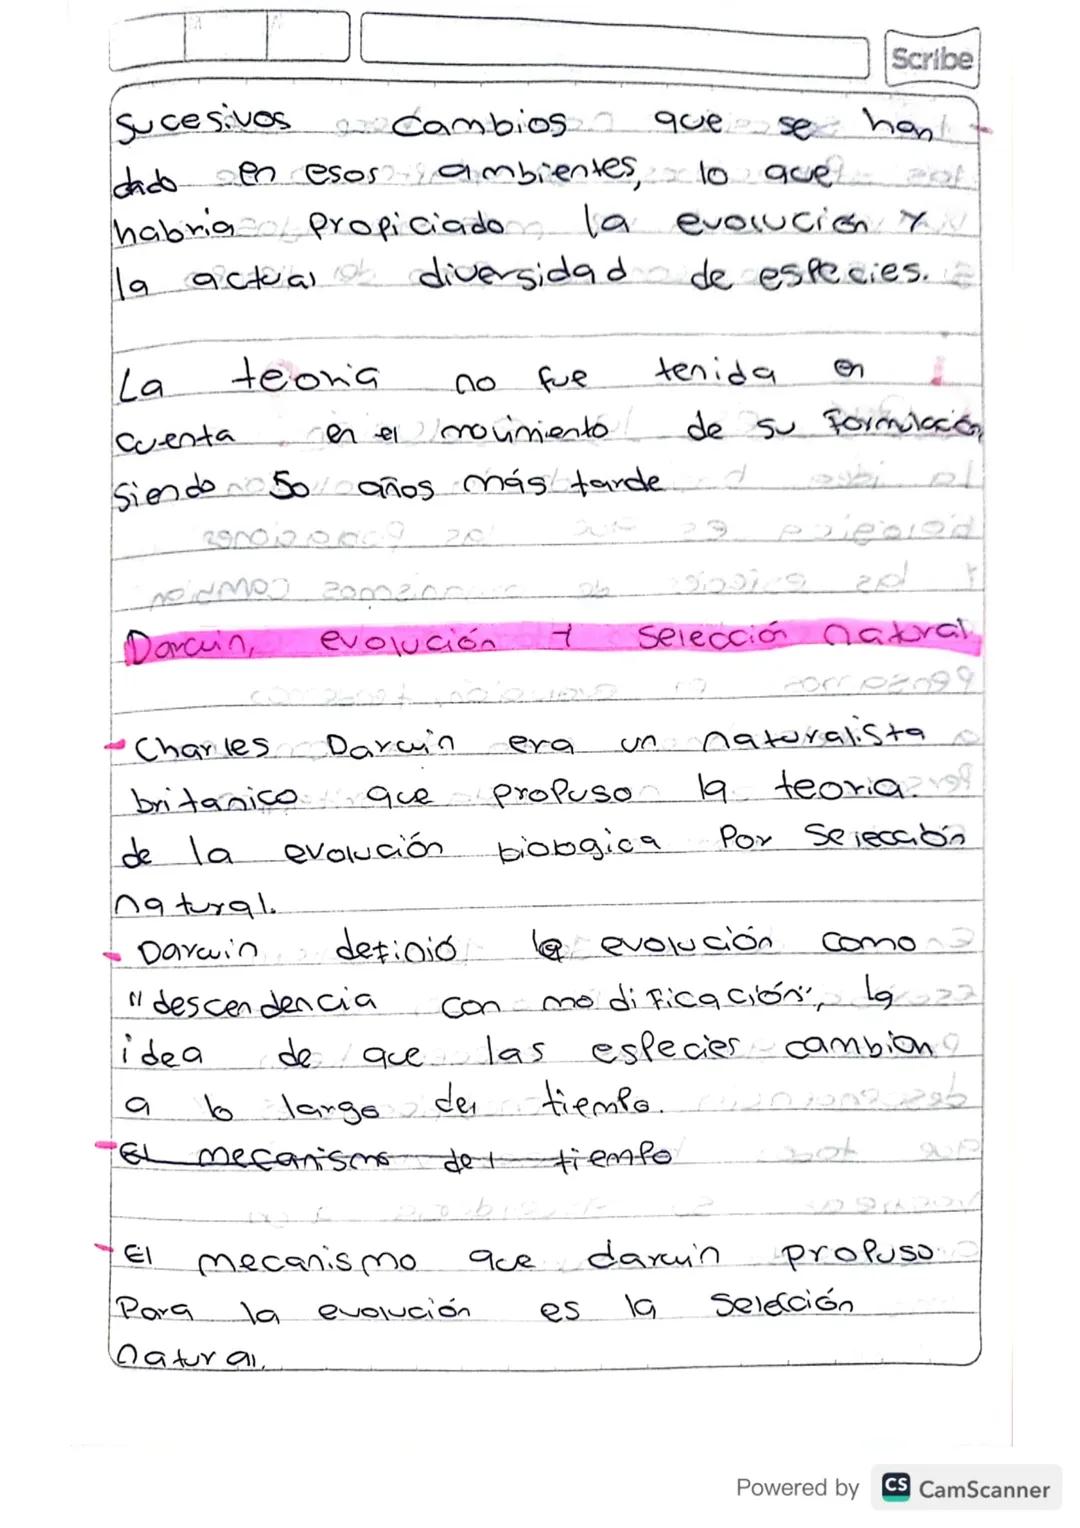 Scribe
Sucesivos cambios que se han
dado en esos ambientes, lo que
habria propiciado la evolución y
la actual diversidad de especies.
La teoria no fue tenida en
cuenta en el movimiento de su formulación,
siendo 50 años más tarde
Darwin, evolución y Selección natural
- Charles Darwin era un naturalista
britanico que propuso la teoria
de la evolución biologica Por Selección
natural.
- Darwin definió la evolución como
"descendencia con modificación", la
idea de que las especies cambian
a lo largo del tiempo.
- El mecanismo del tiempo
- El mecanismo que darwin propuso
Para la evolución es la Selección
natural.
Powered by CS CamScanner